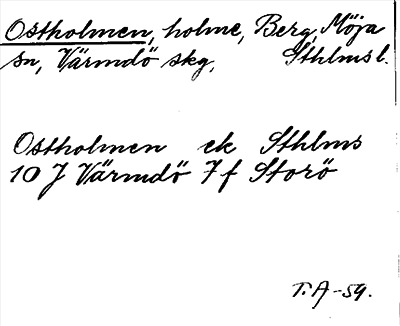 Ostholmen, holme, Berg, Möja
sn, Värmdö skg, Sthlms l.
Ostholmen ek Sthlms
10 J Värmdö 7 f Storö
T. A -59.